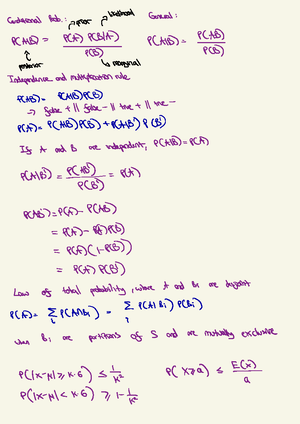 Conditional Prob.: → prior → likelihood General:
P(A|B) = P(A) P(B|A) / P(B) P(A|B) = P(AB) / P(B)
↑ posterior ↳ marginal
Independence and multiplication rule
P(AB) = P(A|B)P(B)
→ false + || false - || true + || true -
P(A) = P(A|B)P(B) + P(A|B') P(B')
If A and B are independent, P(A|B) = P(A)
P(A|B') = P(AB') / P(B') = P(A)
P(AB') = P(A) - P(AB)
= P(A) - P(A)P(B)
= P(A)(1-P(B))
= P(A) P(B')
Law of total probability, where A and Bi are disjoint
P(A) = Σ i P(A∩Bi) = Σ i P(A|Bi) P(Bi)
when Bi are partitions of S and are mutually exclusive
P(|X-μ| ≥ k·σ) ≤ 1/k² P(X ≥ a) ≤ E(X)/a
P(|X-μ| < k·σ) ≥ 1 - 1/k²